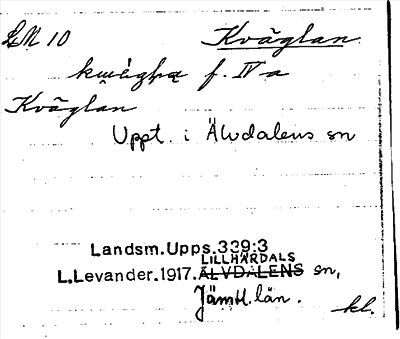 LM 10 Kväglan.
f. IV a
Kväglan
Uppt. i Älvdalens sn
Landsm. Upps. 339:3
LILLHÄRDALS
L. Levander. 1917. ÄLVDALENS sn,
Jämtl. län.
kl.